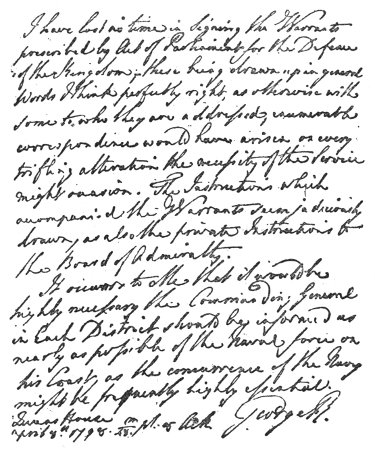 I have lost no time in signing the Warrants
prescribed by Act of Parliament for the Defence
of the Kingdom; these being drawn up in general
words I think perfectly right, as otherwise with
some to who they are addressed, innumerable
correspondence would have arisen on every
trifling alteration the necessity of the Service
might occasion. The Instructions which
accompanied the Warrants seem judiciously
drawn, as also the private Instructions to
the Board of Admiralty.
It occurs to Me that it would be
highly necessary the Commanding General
in Each District should be informed as
nearly as possible of the Naval force on
his Coast, as the concurrence of the Navy
might be frequently highly essential.
Queens House George R.
April 8th 1798. m pt 8 AM